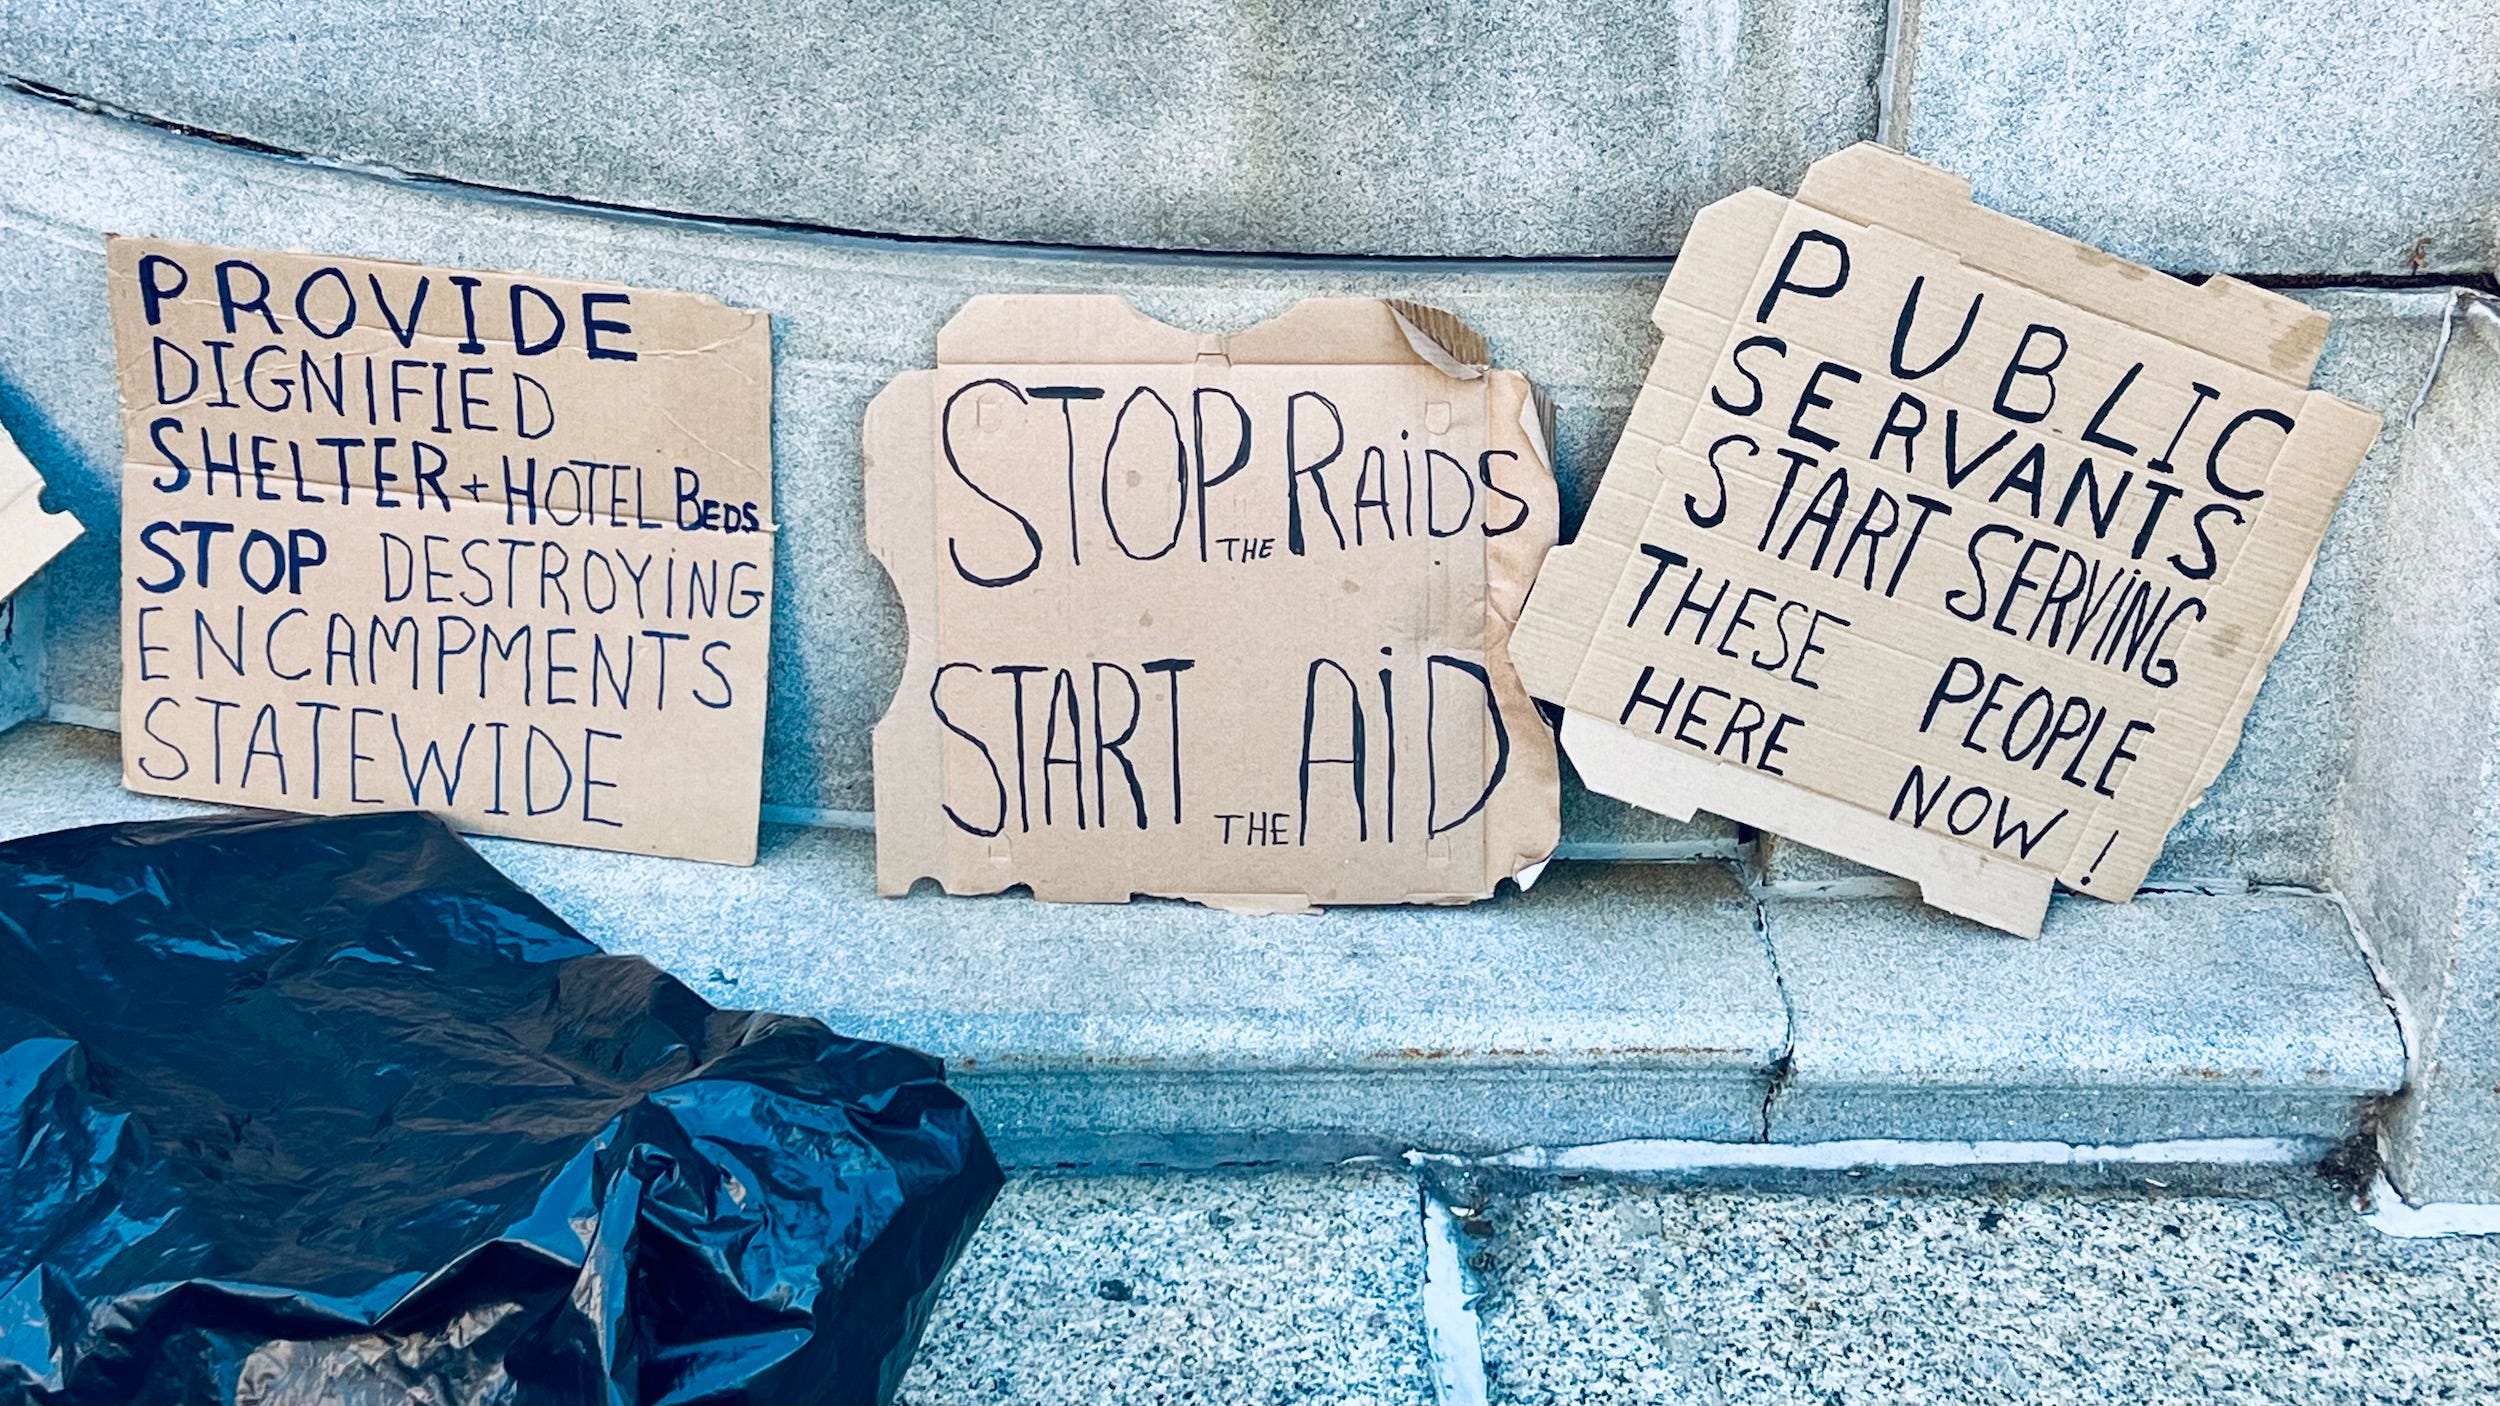 PROVIDE
DIGNIFIED
SHELTER + HOTEL BEDS
STOP DESTROYING
ENCAMPMENTS
STATEWIDE
STOP THE RAIDS
START THE AID
PUBLIC
SERVANTS
START SERVING
THESE PEOPLE
HERE NOW!